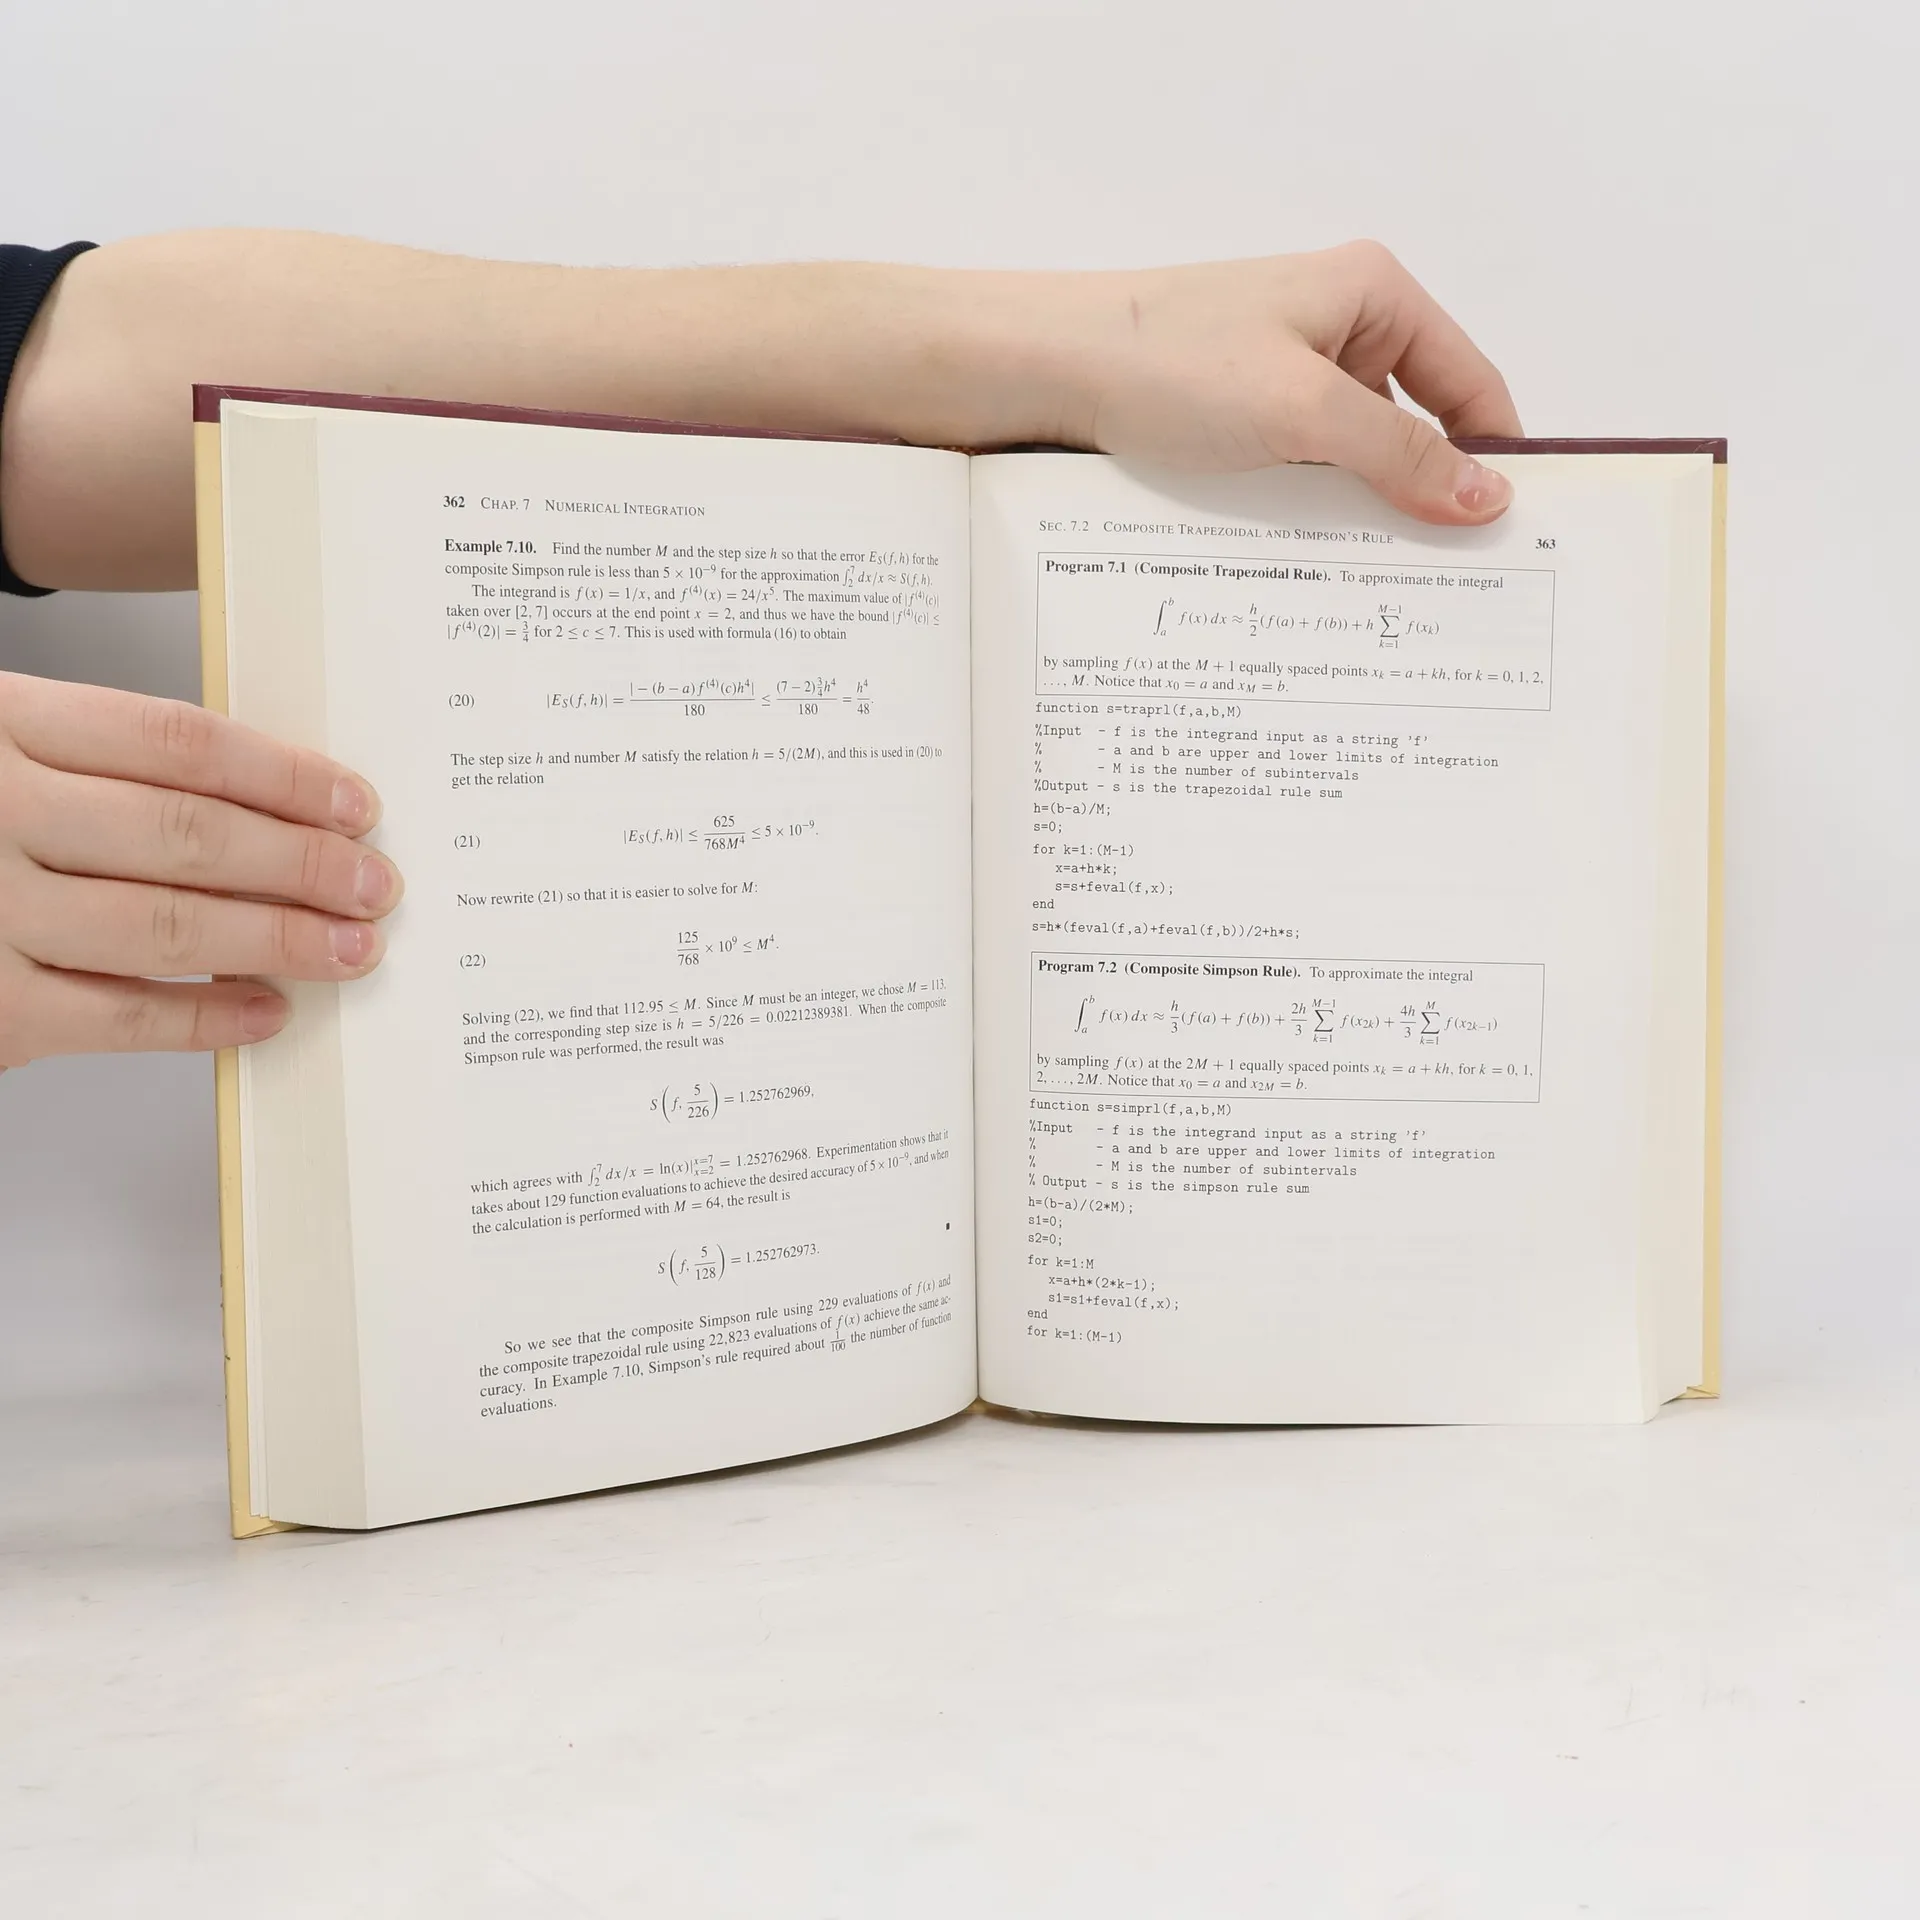 362 CHAP. 7 NUMERICAL INTEGRATION
Example 7.10. Find the number M and the step size h so that the error E_S(f, h) for the
composite Simpson rule is less than 5 × 10⁻⁹ for the approximation ∫₂⁷ dx/x ≈ S(f, h).
The integrand is f(x) = 1/x, and f⁽⁴⁾(x) = 24/x⁵. The maximum value of |f⁽⁴⁾(c)|
taken over [2, 7] occurs at the end point x = 2, and thus we have the bound |f⁽⁴⁾(c)| ≤
|f⁽⁴⁾(2)| = 3/4 for 2 ≤ c ≤ 7. This is used with formula (16) to obtain
(20) |E_S(f, h)| = |−(b − a)f⁽⁴⁾(c)h⁴|/180 ≤ (7 − 2)(3/4)h⁴/180 = h⁴/48.
The step size h and number M satisfy the relation h = 5/(2M), and this is used in (20) to
get the relation
(21) |E_S(f, h)| ≤ 625/768M⁴ ≤ 5 × 10⁻⁹.
Now rewrite (21) so that it is easier to solve for M:
(22) 125/768 × 10⁹ ≤ M⁴.
Solving (22), we find that 112.95 ≤ M. Since M must be an integer, we chose M = 113,
and the corresponding step size is h = 5/226 = 0.02212389381. When the composite
Simpson rule was performed, the result was
S(f, 5/226) = 1.252762969,
which agrees with ∫₂⁷ dx/x = ln(x)|ₓ₌₂ˣ⁼⁷ = 1.252762968. Experimentation shows that it
takes about 129 function evaluations to achieve the desired accuracy of 5 × 10⁻⁹, and when
the calculation is performed with M = 64, the result is
S(f, 5/128) = 1.252762973.
So we see that the composite Simpson rule using 229 evaluations of f(x) and
the composite trapezoidal rule using 22,823 evaluations of f(x) achieve the same ac-
curacy. In Example 7.10, Simpson's rule required about 1/100 the number of function
evaluations.
SEC. 7.2 COMPOSITE TRAPEZOIDAL AND SIMPSON'S RULE 363
Program 7.1 (Composite Trapezoidal Rule). To approximate the integral
∫ₐᵇ f(x) dx ≈ h/2 (f(a) + f(b)) + h ∑_{k=1}^{M−1} f(x_k)
by sampling f(x) at the M + 1 equally spaced points x_k = a + kh, for k = 0, 1, 2,
..., M. Notice that x₀ = a and x_M = b.
function s=traprl(f,a,b,M)
%Input - f is the integrand input as a string 'f'
% - a and b are upper and lower limits of integration
% - M is the number of subintervals
%Output - s is the trapezoidal rule sum
h=(b-a)/M;
s=0;
for k=1:(M-1)
x=a+h*k;
s=s+feval(f,x);
end
s=h*(feval(f,a)+feval(f,b))/2+h*s;
Program 7.2 (Composite Simpson Rule). To approximate the integral
∫ₐᵇ f(x) dx ≈ h/3 (f(a) + f(b)) + 2h/3 ∑_{k=1}^{M−1} f(x_{2k}) + 4h/3 ∑_{k=1}^{M} f(x_{2k−1})
by sampling f(x) at the 2M + 1 equally spaced points x_k = a + kh, for k = 0, 1,
2, ..., 2M. Notice that x₀ = a and x_{2M} = b.
function s=simprl(f,a,b,M)
%Input - f is the integrand input as a string 'f'
% - a and b are upper and lower limits of integration
% - M is the number of subintervals
% Output - s is the simpson rule sum
h=(b-a)/(2*M);
s1=0;
s2=0;
for k=1:M
x=a+h*(2*k-1);
s1=s1+feval(f,x);
end
for k=1:(M-1)